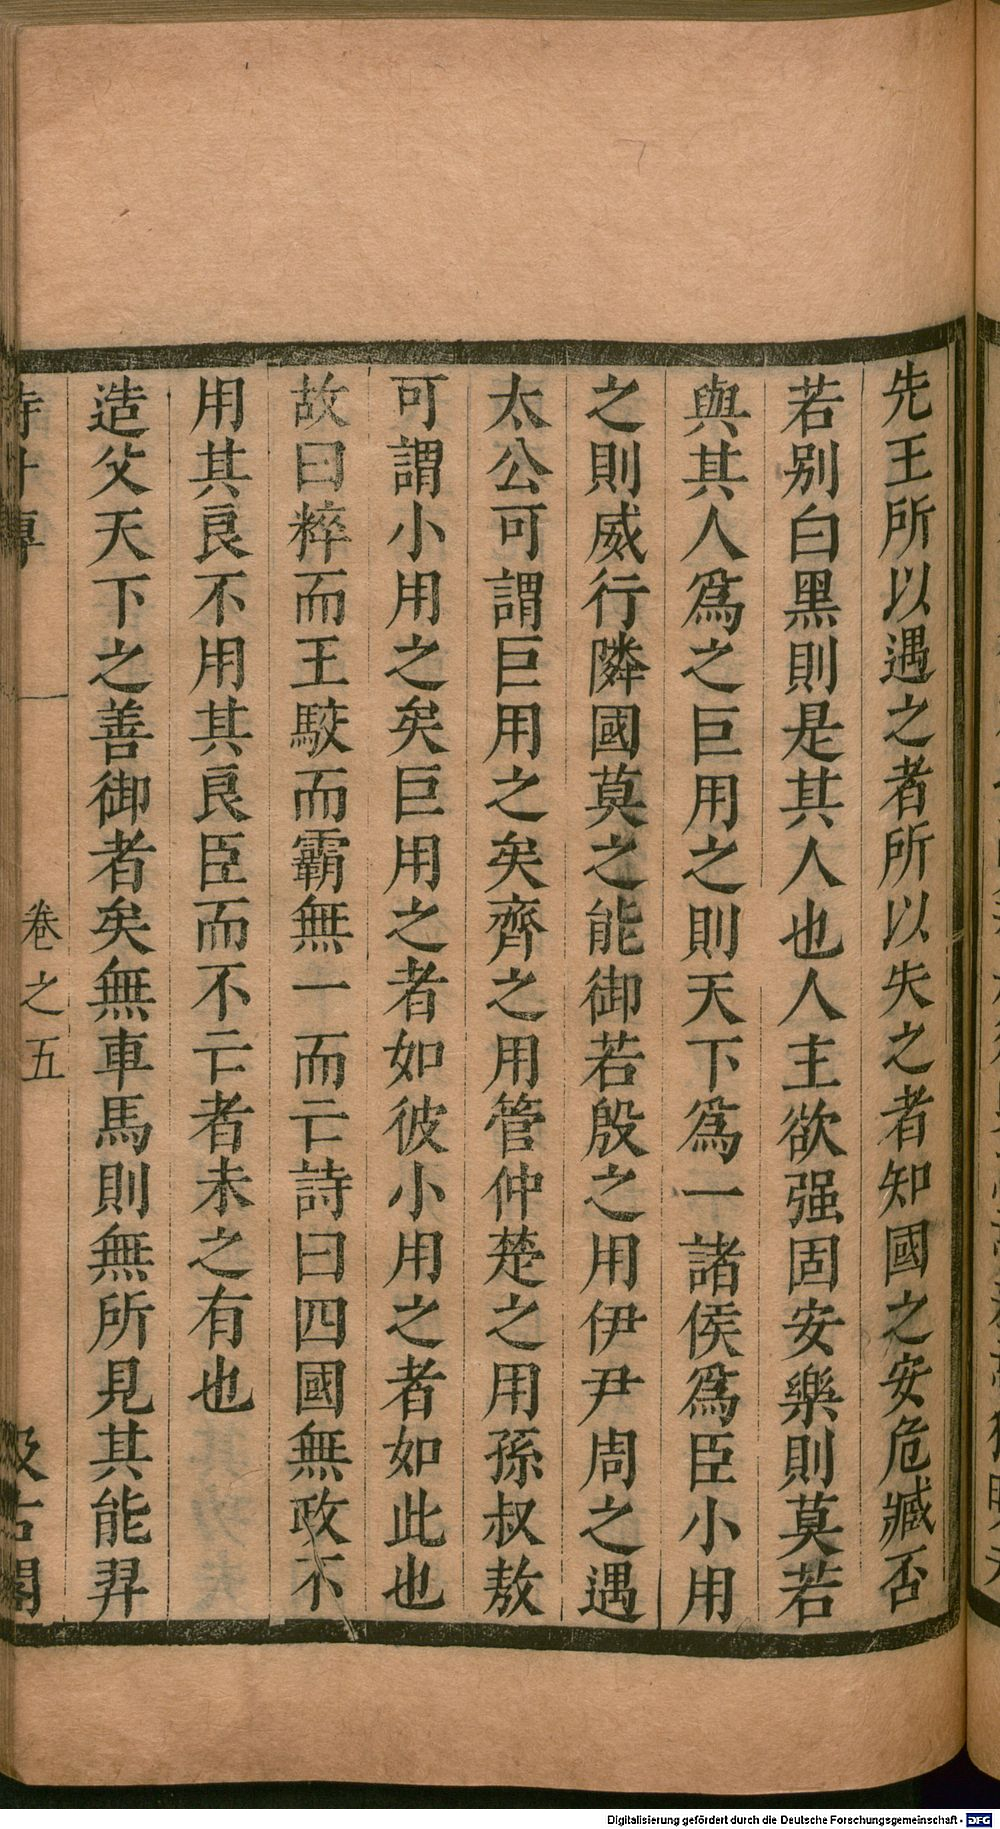 先王所以遇之者所以失之者知國之安危臧否
若别白黑則是其人也人主欲强固安樂則莫若
與其人爲之巨用之則天下爲一諸侯爲臣小用
之則威行隣國莫之能御若殷之用伊尹周之遇
太公可謂巨用之矣齊之用管仲楚之用孫叔敖
可謂小用之矣巨用之者如彼小用之者如此也
故曰粹而王駮而霸無一而亡詩曰四國無政不
用其良不用其良臣而不亡者未之有也
造父天下之善御者矣無車馬則無所見其能羿
卷之五
Digitalisierung gefördert durch die Deutsche Forschungsgemeinschaft - DFG